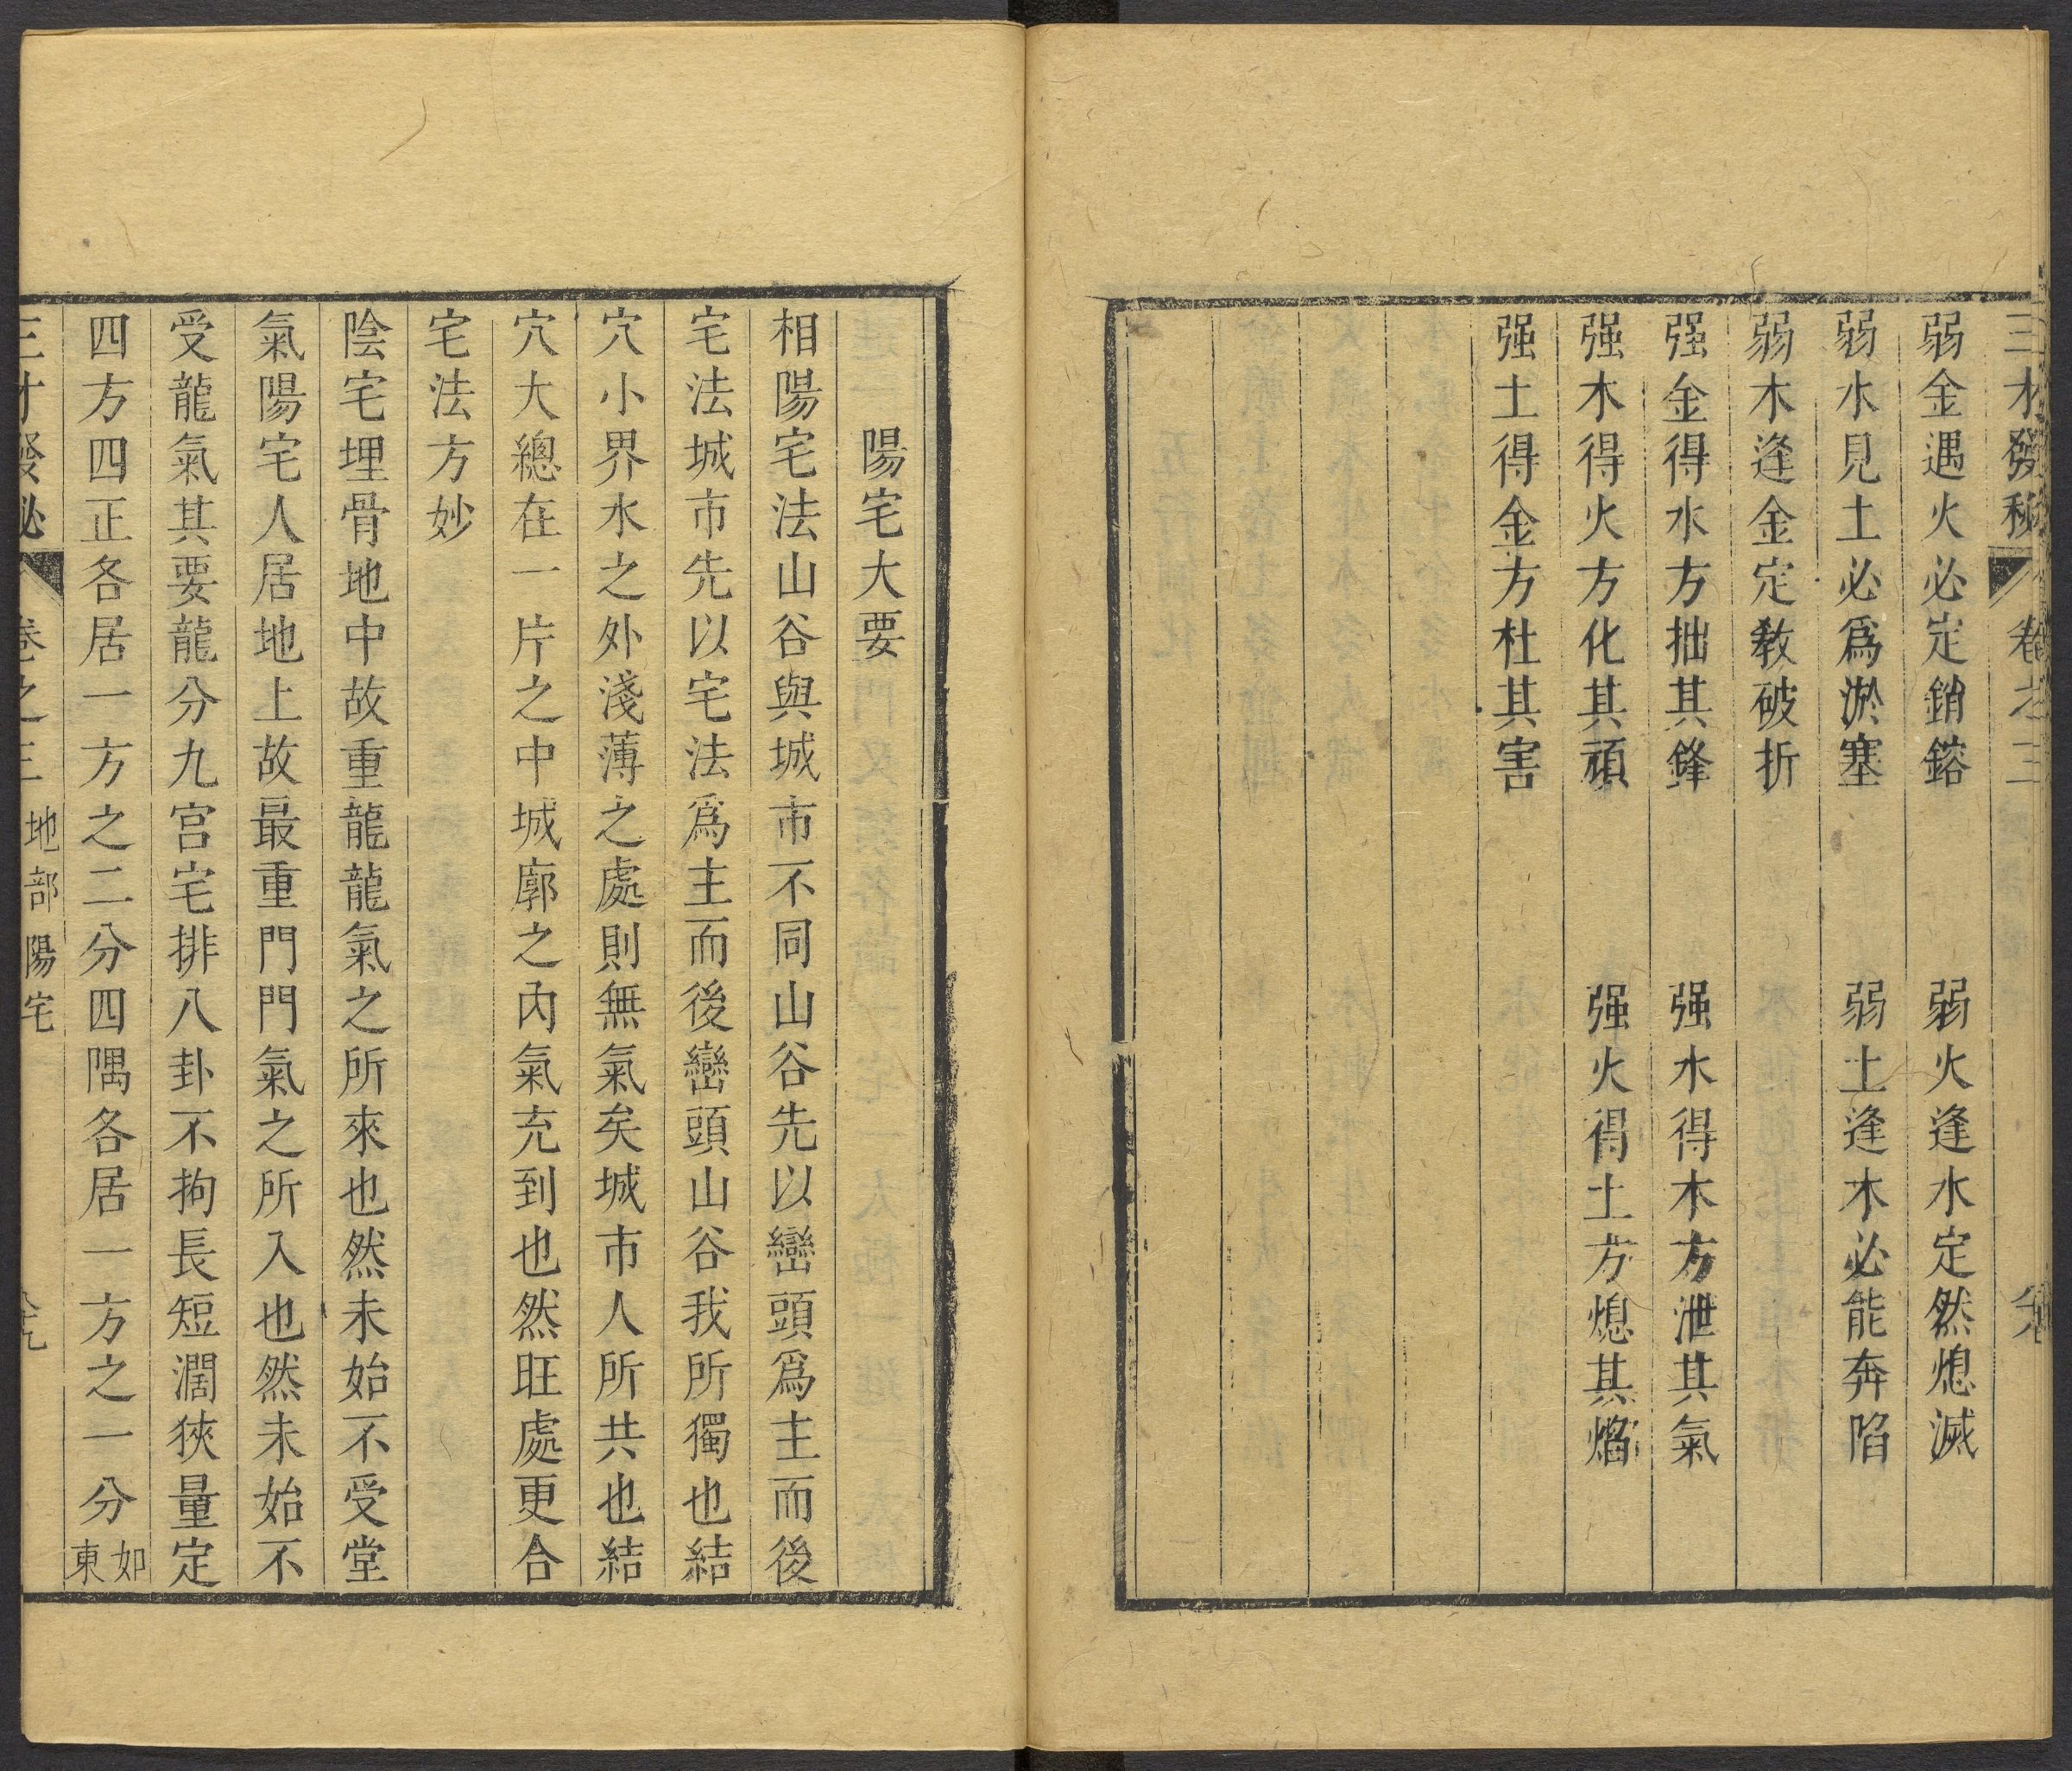 三才發秘 卷之三
弱金遇火必定銷鎔 弱火逢水定然熄滅
弱水見土必爲淤塞 弱土逢木必能奔陷
弱木逢金定教破折
强金得水方拙其鋒 强水得木方泄其氣
强木得火方化其頑 强火得土方熄其焰
强土得金方杜其害
陽宅大要
相陽宅法山谷與城市不同山谷先以巒頭爲主而後
宅法城市先以宅法爲主而後巒頭山谷我所獨也結
穴小界水之外淺薄之處則無氣矣城市人所共也結
穴大總在一片之中城廓之內氣充到也然旺處更合
宅法方妙
陰宅埋骨地中故重龍龍氣之所來也然未始不受堂
氣陽宅人居地上故最重門門氣之所入也然未始不
受龍氣其要龍分九宮宅排八卦不拘長短濶狹量定
四方四正各居一方之二分四隅各居一方之一分如東
三才發秘 卷之三 地部 陽宅